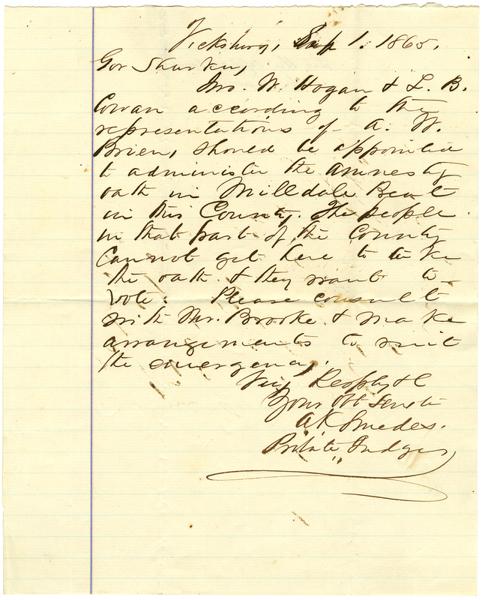 Vicksburg, Sep 1. 1865.
Gov Sharkey,
Jno. W. Hogan & L. B.
Cowan according to the
representations of A. W.
Brien, should be appointed
to administer the amnesty
oath in Milldale Beat
in this County. The people
in that part of the County
cannot get here to take
the oath & they want to
vote. Please consult
with Mr. Brooke & make
arrangements to suit
the emergency.
Very Respfly &c
Your Obt Servt
A K Smedes.
Probate Judge